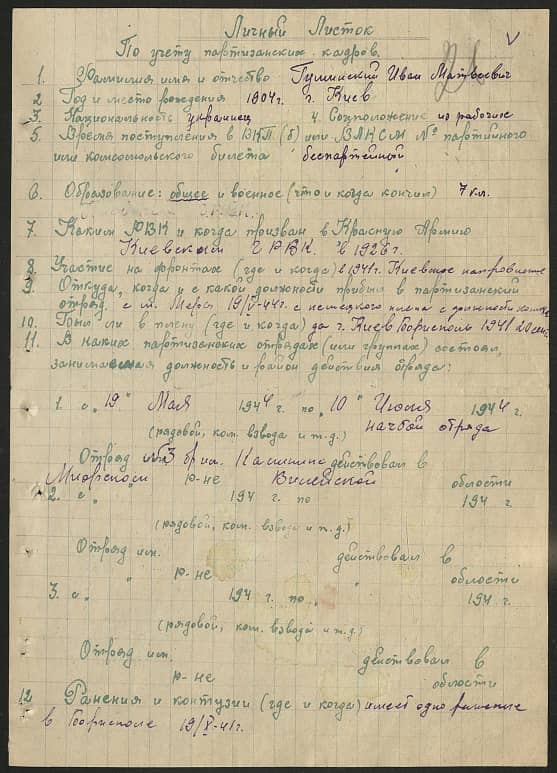 Личный Листок
По учету партизанских кадров.
1. Фамилия имя и отчество Гушинский Иван Матвеевич
2 Год и место рождения 1904 г. г. Киев
3. Национальность украинец 4. Соцположение из рабочих
5. Время поступления в ВКП(б) или ВЛКСМ № партийного
или комсомольского билета беспартейной
6. Образование: общее и военное (что и когда кончил) 7 кл.
7. Каким РВК и когда призван в Красную Армию
Киевским ГРВК в 1926 г.
8. Участие на фронтах (где и когда) в 1941 г. Киевское направление
9. Откуда, когда и с какой должности прибыл в партизанский
отряд. с м. Меры 19/V-44 г. с немецкого плена с должности
10. Был ли в плену (где и когда) да г. Киев Борисполь 1941 20 сен.
11. В каких партизанских отрядах (или группах) состоял,
занимаемая должность и район действия отряда:
1. с „19" Мая 1944 г. по „10" Июня 1944 г.
(рядовой, ком. взвода и т.д.) начбой отряда
Отряд им. 3 бр им. Калинина действовал в
Миорском р-не Вилейской области
2. с „ " 194 г. по 194 г.
(рядовой, ком. взвода и т.д.)
Отряд им. действовал в
р-не области
3. с „ 194 г. по „ 194 г.
(рядовой, ком. взвода и т.д.)
Отряд им. действовал в
р-не области
12 Ранения и контузии (где и когда) имеет одно ранение
в Борисполе 19/X-41 г.